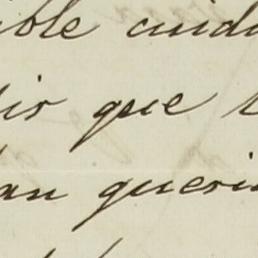 ible cuida
ir que
an queri